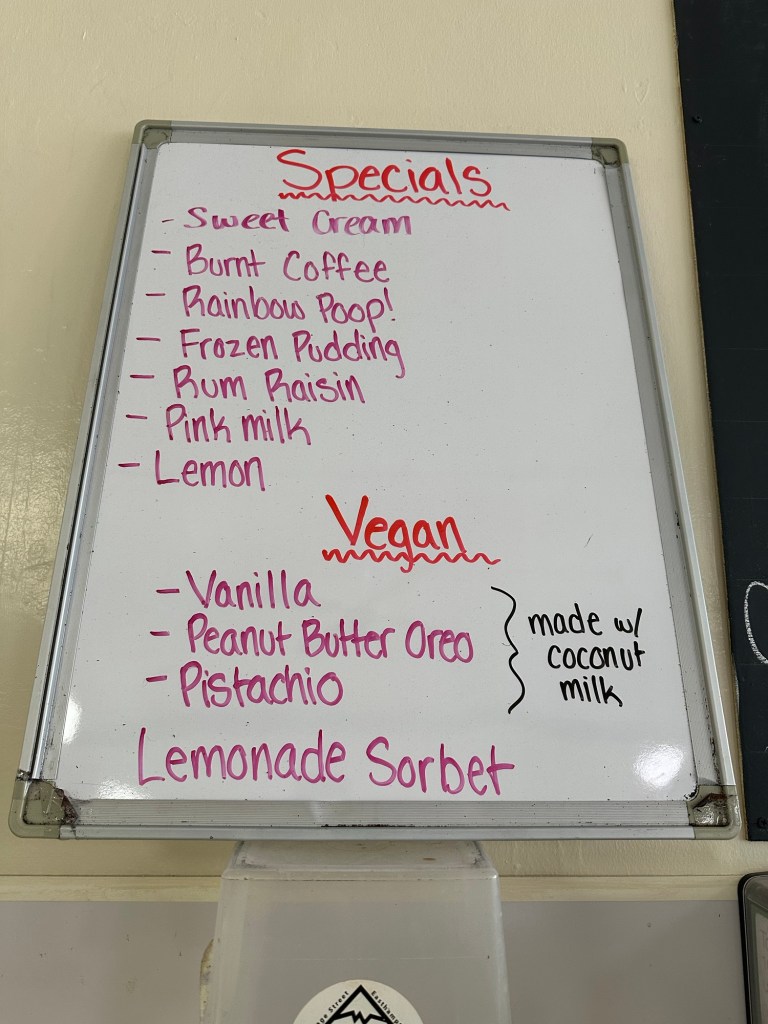 Specials
- Sweet Cream
- Burnt Coffee
- Rainbow Poop!
- Frozen Pudding
- Rum Raisin
- Pink milk
- Lemon
Vegan
- Vanilla
- Peanut Butter Oreo
- Pistachio
made w/
coconut
milk
Lemonade Sorbet
Street